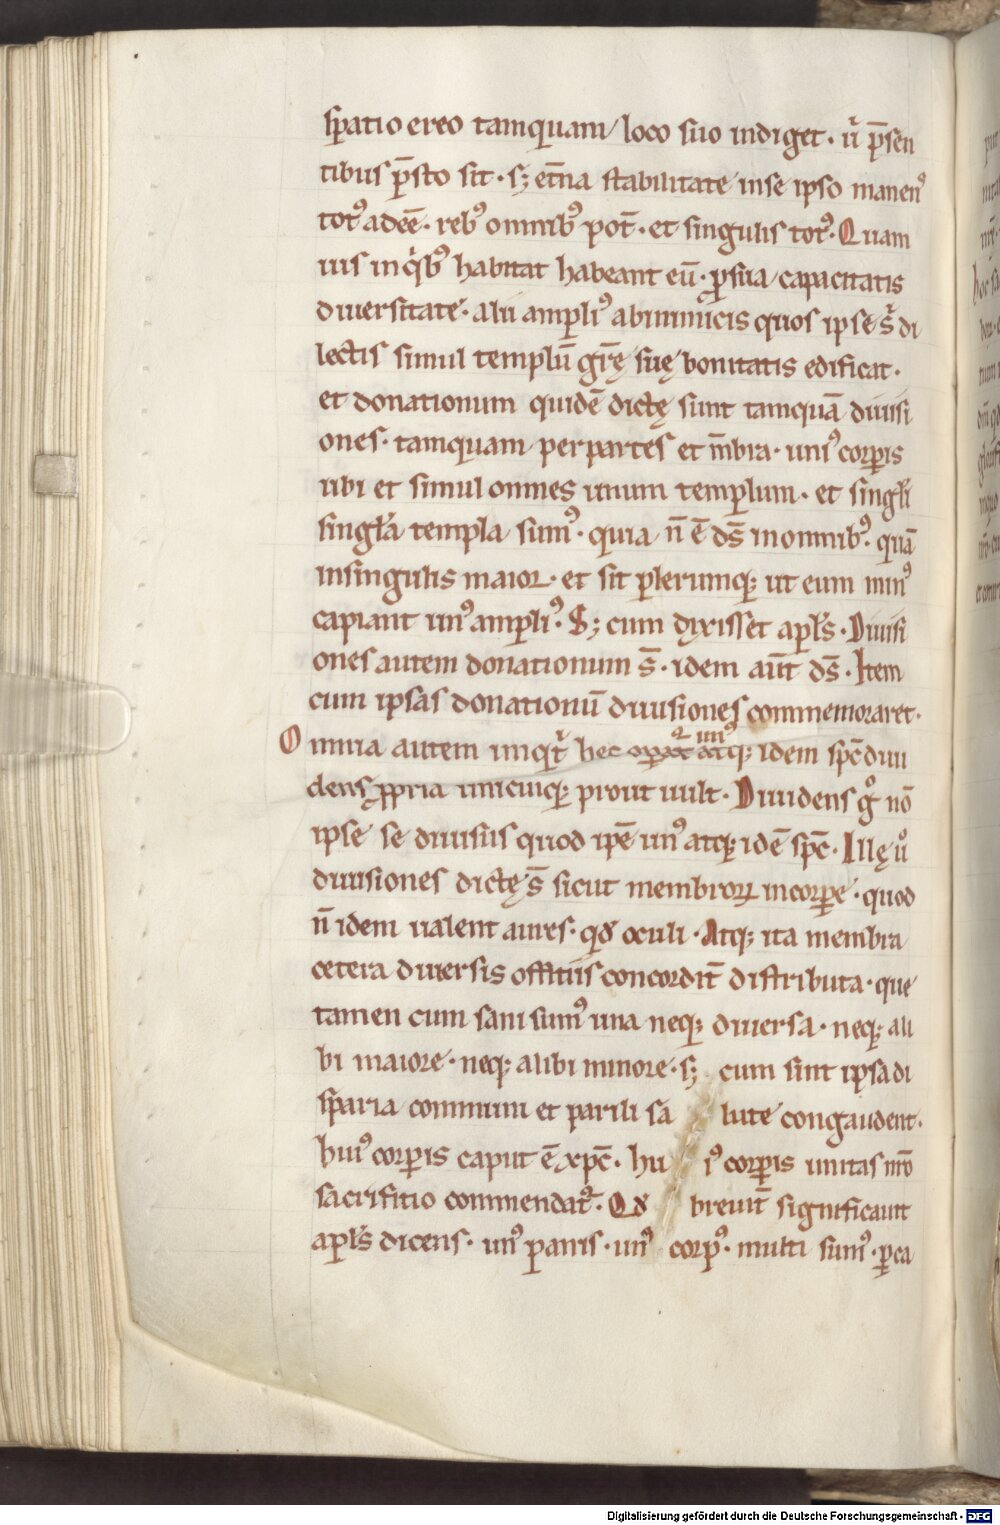 spatio ereo tamquam loco suo indiget · ur̄ p̄sen
tibus p̄sto sit · sꝫ et̄na stabilitate in se ipso manenꝰ
totꝰ adeē · rebꝰ omnibꝰ pot̄ · et singulis totꝰ · Quam
uis in qͥbꝰ habitat habeant eū · ꝓ sua capacitatis
diuersitate · alii ampliꝰ alii minus quos ipse s̄ di
lectis simul templū gr̄ę suę bonitatis edificat ·
et donationum quidē dictę sunt tamquā diuisi
ones · tamquam per partes et m̄bra · uniꝰ corꝑis
ubi et simul omnes unum templum · et singłi
singła templa sumꝰ · quia n̄ ē ds̄ in omnibꝰ · quā
in singulis maior · et sit plerumqꝫ ut eum minꝰ
capiant unꝰ ampliꝰ · Sꝫ cum dixisset apłs · Diuisi
ones autem donationum s̄ · idem aut̄ ds̄ · Item
cum ipsas donationū diuisiones commemoraret ·
Omnia autem inqt̄ hec opat̄ unꝰ atqꝫ idem spc̄ diui
dens ꝓpria unicuiqꝫ prout uult · Diuidens gͦ nō
ipse se diuisus quod ipē unꝰ atqꝫ idē spc̄ · Illę uͦ
diuisiones dictę s̄ sicut membroꝝ in corꝑe · quod
n̄ idem ualent aures · qđ oculi · Atqꝫ ita membra
cetera diuersis offitiis concordit̄ distributa · que
tamen cum sani sumꝰ una neqꝫ diuersa · neqꝫ ali
bi maiore · neqꝫ alibi minore · sꝫ cum sint ipsa di
sparia communi et parili sa lute congaudent ·
huiꝰ corꝑis caput ē xpc̄ · hu iꝰ corꝑis unitas nr̄o
sacrifitio commendatꝰ · Qđ breuit̄ significauit
apłs dicens · unꝰ panis · unꝰ corpꝰ · multi sumꝰ · ꝑ ea
Digitalisierung gefördert durch die Deutsche Forschungsgemeinschaft - DFG